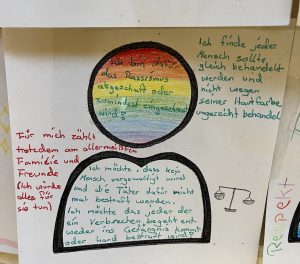 Ich bin dafür
das Rassismus
abgeschaft oder
zumindest eingeschränkt
wird?
Ich finde jeder
Mensch sollte
gleich behandelt
werden und
nicht wegen
seiner Hautfarbe
ungerecht behandel
Für mich zählt
trotzdem am allermeißten
Familie und
Freunde
(Ich würde
alles für
sie tun)
Ich möchte, dass kein
Mensch vergewaltigt wird
und die Täter dafür nicht
mal bestraft werden.
Ich möchte das jeder der
ein verbrechen, begeht ent-
weder ins Gefängnis kommt
oder hard bestraft wird?
Respekt